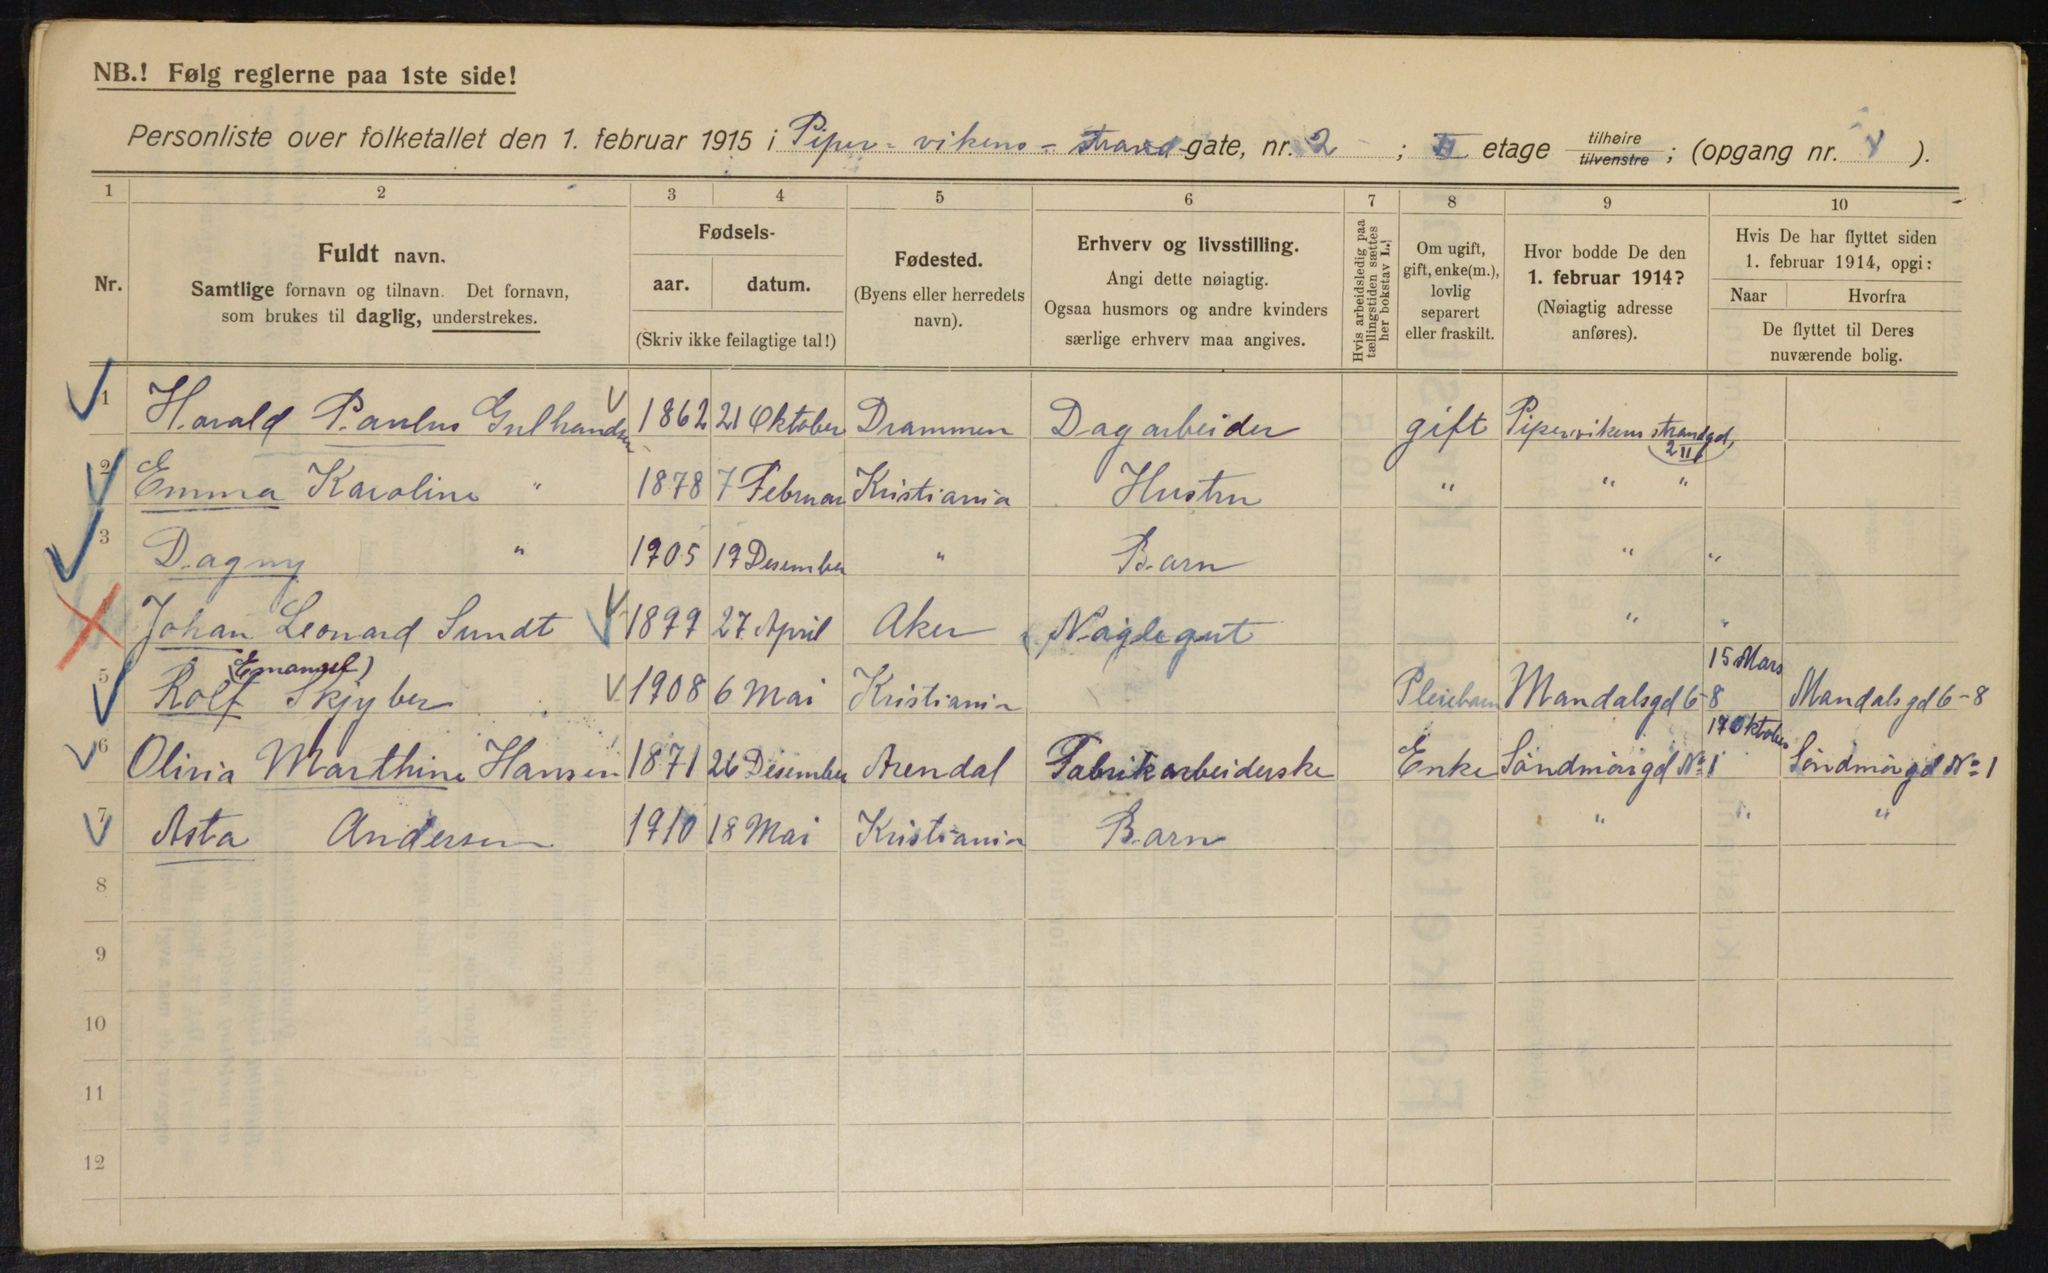 NB.! Følg reglerne paa 1ste side!
Personliste over folketallet den 1. februar 1915 i Piper-vikens-strand gate, nr. 2; II etage tilhøire / tilvenstre; (opgang nr. ).
1 2 3 4 5 6 7 8 9 10
Nr.
Fuldt navn.
Samtlige fornavn og tilnavn. Det fornavn,
som brukes til daglig, understrekes.
Fødsels-
aar. datum.
(Skriv ikke feilagtige tal!)
Fødested.
(Byens eller herredets
navn).
Erhverv og livsstilling.
Angi dette nøiagtig.
Ogsaa husmors og andre kvinders
særlige erhverv maa angives.
Hvis arbeidsledig paa
tællingstiden sættes
her bokstav L.!
Om ugift,
gift, enke(m.),
lovlig
separert
eller fraskilt.
Hvor bodde De den
1. februar 1914?
(Nøiagtig adresse
anføres).
Hvis De har flyttet siden
1. februar 1914, opgi:
Naar Hvorfra
De flyttet til Deres
nuværende bolig.
1 Harald Paulus Gulhandsen 1862 21 Oktober Drammen Dagarbeider gift Pipervikens strandgd, 2 II
2 Emma Karoline " 1878 7 Februar Kristiania Hustru " " "
3 Dagny " 1905 19 Desember " Barn " "
Johan Leonard Sundt 1899 27 April Aker Naglegut " "
5 Rolf (Emanuel) Skjyber 1908 6 Mai Kristiania Pleiebarn Mandalsgd 6-8 15 Mars Mandalsgd 6-8
6 Olivia Marthine Hansen 1871 26 Desember Arendal Fabrikarbeiderske Enke Søndmørgd No 1 17 Oktober Søndmørgd No 1
7 Asta Andersen 1910 18 Mai Kristiania Barn " " "
8
9
10
11
12